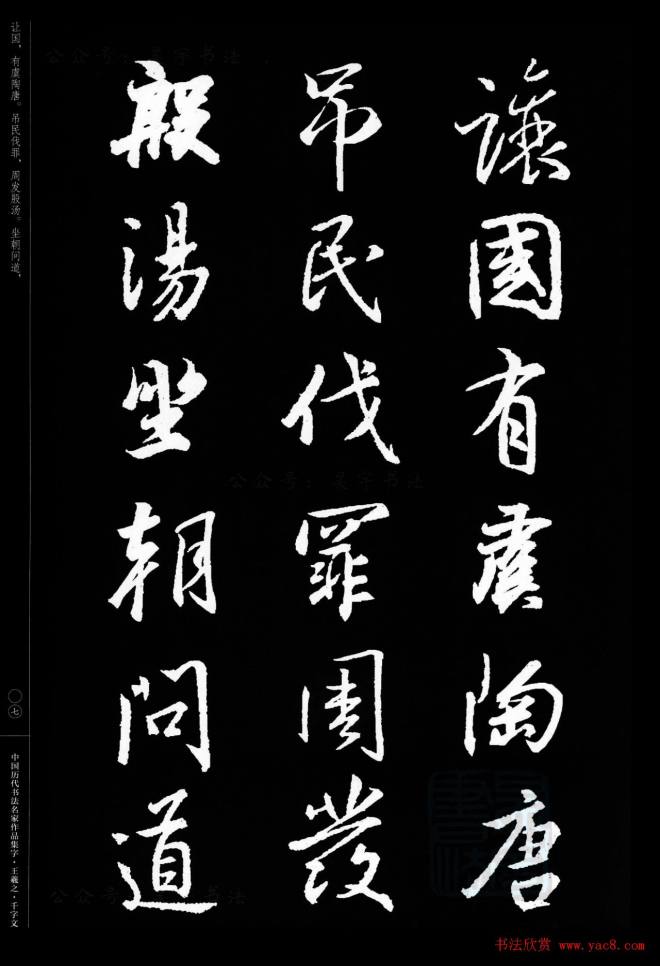 讓國有虞陶唐
弔民伐罪周發
殷湯坐朝問道
让国，有虞陶唐。吊民伐罪，周发殷汤。坐朝问道，
〇七
中国历代书法名家作品集字·王羲之·千字文
公众号：吴宇书法
公众号：吴宇书法
公众号：吴宇书法
书法欣赏 www.yac8.com